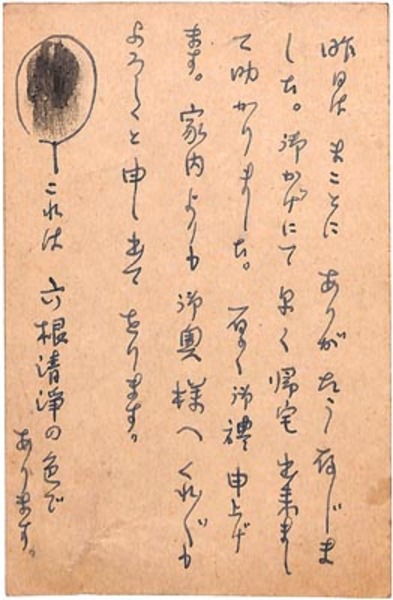 昨日は まことに ありがたう存じま
した。御かげにて 早く帰宅出来まし
て助かりました。厚く御禮申上げ
ます。家内よりも御奥様へくれ〴〵も
よろしくと申し出て をります。
これは 六根清浄の色で
あります。